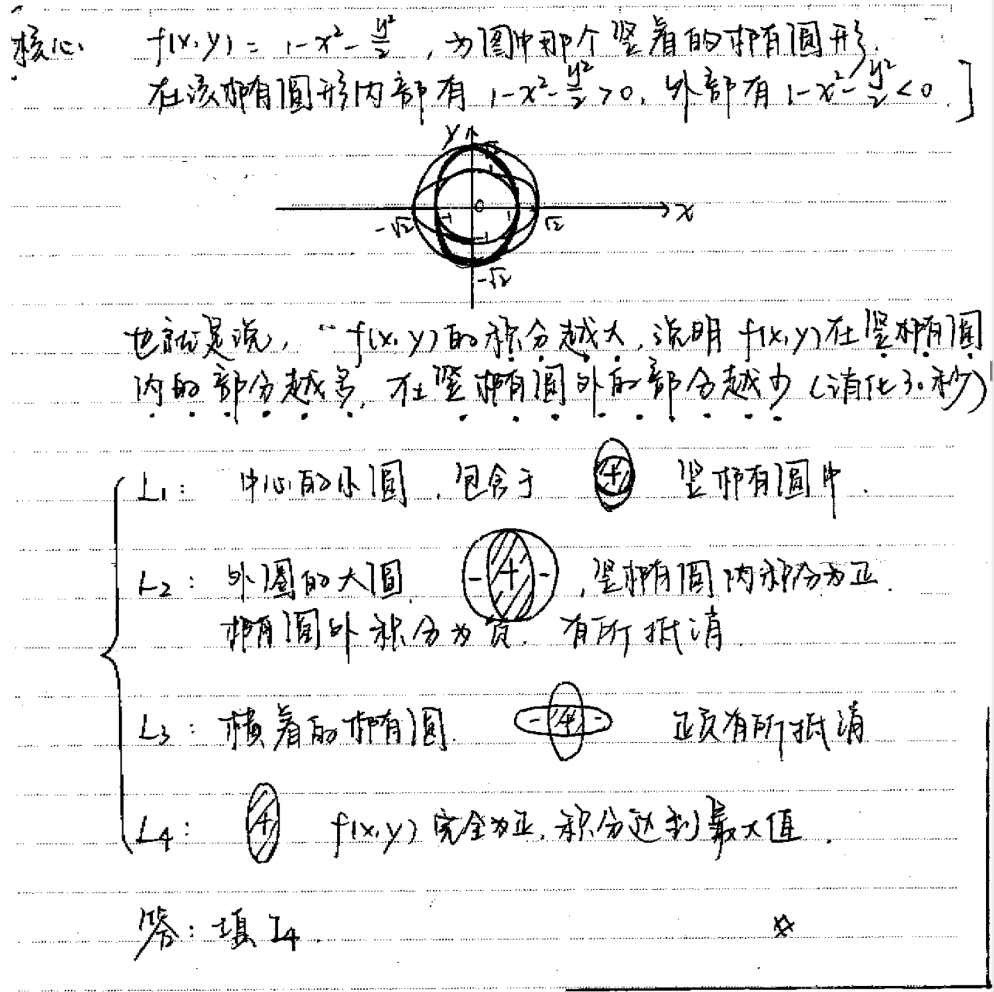 核心: f(x,y) = 1-x²-y²/2, 为图中那个竖着的椭圆形.
在该椭圆形内部有 1-x²-y²/2>0, 外部有 1-x²-y²/2<0.]
y √2
1
-√2 -1 0 1 √2 x
-1
-√2
也就是说, "f(x,y)的积分越大, 说明 f(x,y)在竖椭圆
内的部分越多, 在竖椭圆外的部分越少 (消化30秒)
L1: 中心的小圆, 包含于 + 竖椭圆中.
L2: 外圈的大圆. - + - , 竖椭圆内积分为正.
椭圆外积分为负. 有所抵消.
L3: 横着的椭圆. - + - 正负有所抵消
L4: + f(x,y) 完全为正, 积分达到最大值.
答: 填 I4. ☆